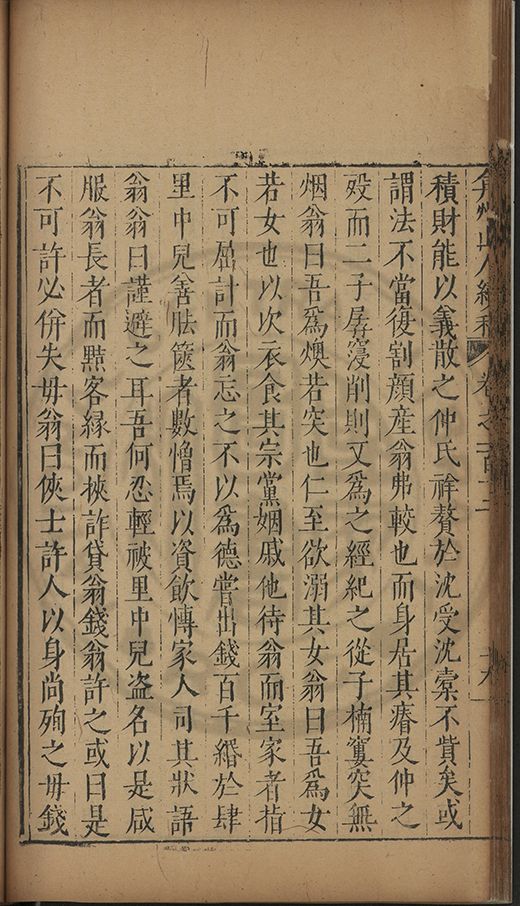 弇州山人續稿 卷之一百十二
積財能以義散之仲氏祥贅於沈受沈橐不貲矣或
謂法不當復割顔產翁弗較也而身居其瘠及仲之
歿而二子孱寖削則又爲之經紀之從子楠窶突無
烟翁曰吾爲燠若突也仁至欲溺其女翁曰吾爲女
若女也以次衣食其宗黨姻戚他待翁而室家者指
不可屈計而翁忘之不以爲德嘗出錢百千緡於肆
里中兒善胠篋者數憎焉以資飲慱家人司其狀語
翁翁曰謹避之耳吾何忍輕被里中兒盗名以是咸
服翁長者而黠客緣而挾詐貸翁錢翁許之或曰是
不可許必併失毋翁曰俠士許人以身尚殉之毋錢